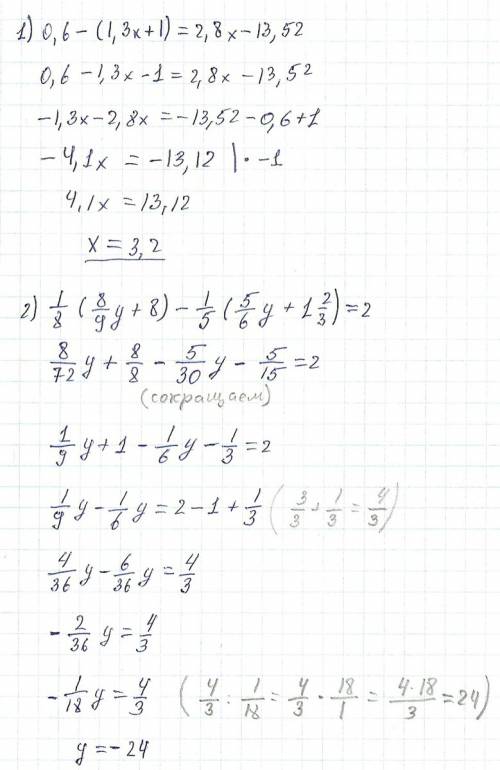 1) 0,6 - (1,3x+1) = 2,8x - 13,52
0,6 - 1,3x - 1 = 2,8x - 13,52
-1,3x - 2,8x = -13,52 - 0,6 + 1
-4,1x = -13,12 | · -1
4,1x = 13,12
x = 3,2
2) 1/8 (8/9 y + 8) - 1/5 (5/6 y + 1 2/3) = 2
8/72 y + 8/8 - 5/30 y - 5/15 = 2
(сокращаем)
1/9 y + 1 - 1/6 y - 1/3 = 2
1/9 y - 1/6 y = 2 - 1 + 1/3 (3/3 + 1/3 = 4/3)
4/36 y - 6/36 y = 4/3
- 2/36 y = 4/3
- 1/18 y = 4/3 (4/3 : 1/18 = 4/3 · 18/1 = 4·18/3 = 24)
y = -24